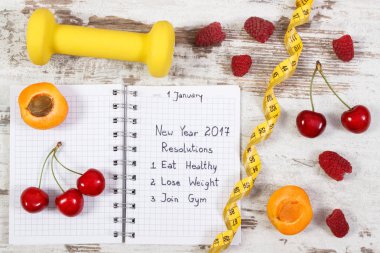 1 January
New Year 2017
Resolutions
1 Eat Healthy
2 Lose Weight
3 Join Gym